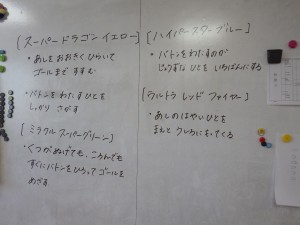 [スーパードラゴンイエロー]
・あしをおおきくひらいて
ゴールまですすむ
・バトンをわたすひとを
しっかり さがす
[ミラクルスーパーグリーン]
・くつがぬげても、ころんでも
すぐにバトンをひろってゴールを
めざす
[ハイパースターブルー]
・バトンをわたすのが
じょうずな ひとを いちばんにする
[ウルトラ レッド ファイヤー]
・あしのはやいひとを
まえと うしろにもってくる